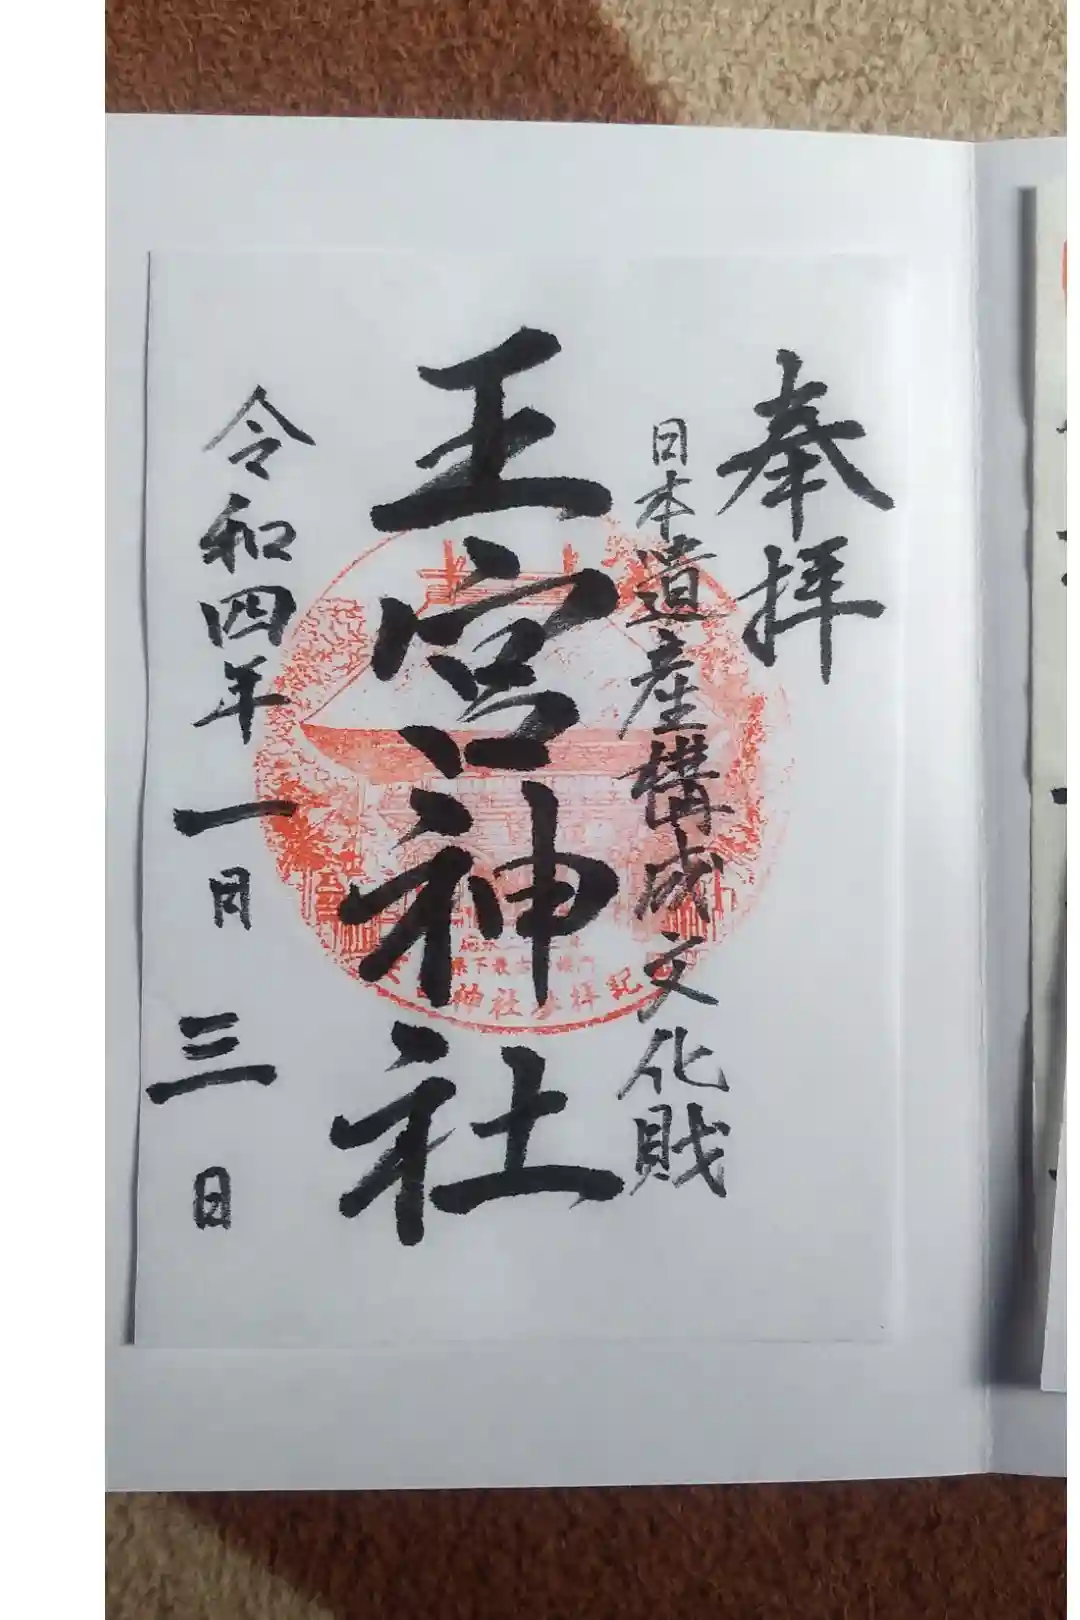 奉拝
日本遺産構成文化財
王宮神社
令和四年一月三日
県下最古
神社参拝記